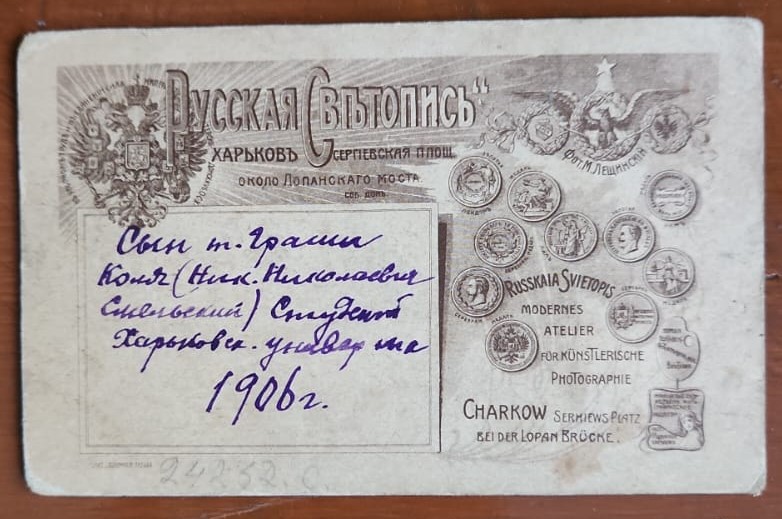 „Русская Свѣтопись“
Харьковъ Сергіевская площ.
около Лопанскаго моста.
соб. домъ.
Фот. М. Лещинскій
Сын т. Граши
Коля (Ник. Николаевич
Смельский) Студент
Харьковск. универ та
1906 г.
Russkaia Svietopis
Modernes
Atelier
für Künstlerische
Photographie
Charkow Serkiews Platz
bei der Lopan Brücke.
24252. с.